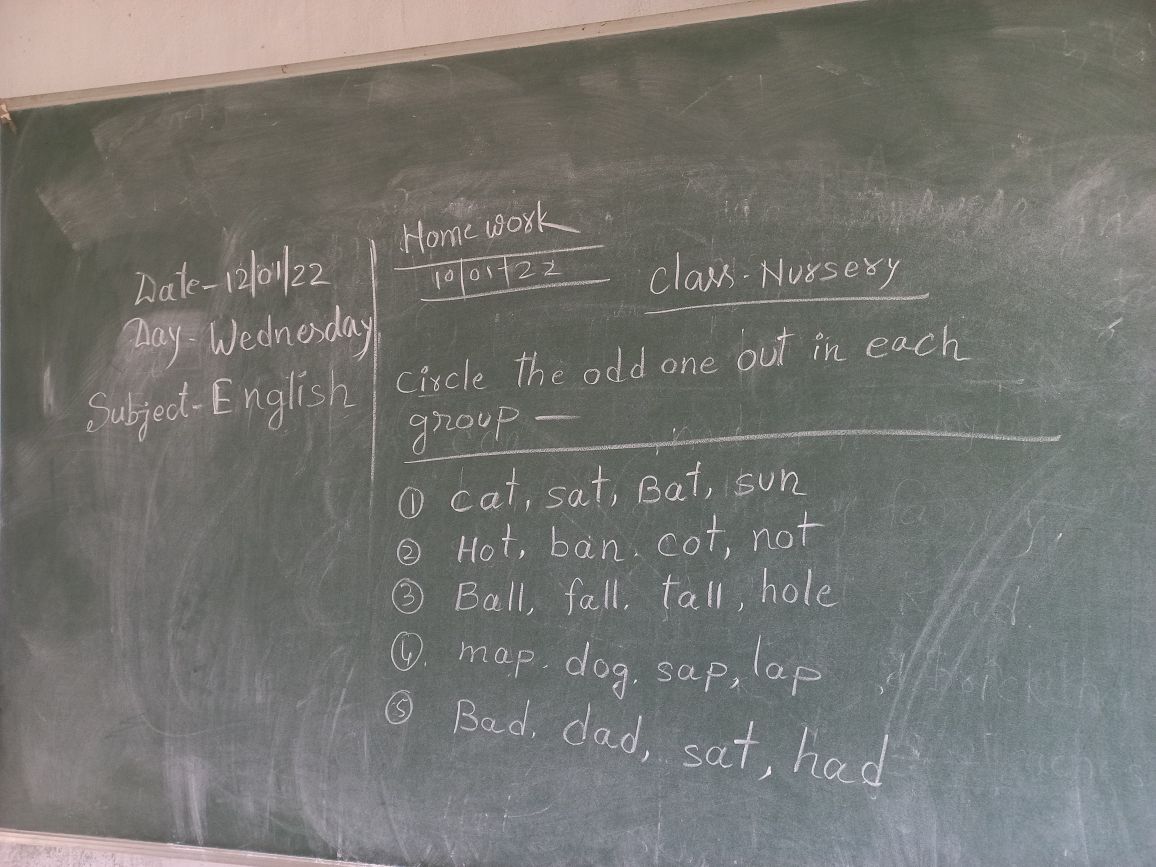 Date-12/01/22
Day-Wednesday
Subject-English
Home work
10/01/22
Class-Nursery
Circle the odd one out in each
group —
① cat, sat, Bat, sun
② Hot, ban. cot, not
③ Ball, fall. tall, hole
④. map. dog. sap, lap
⑤ Bad. dad, sat, had